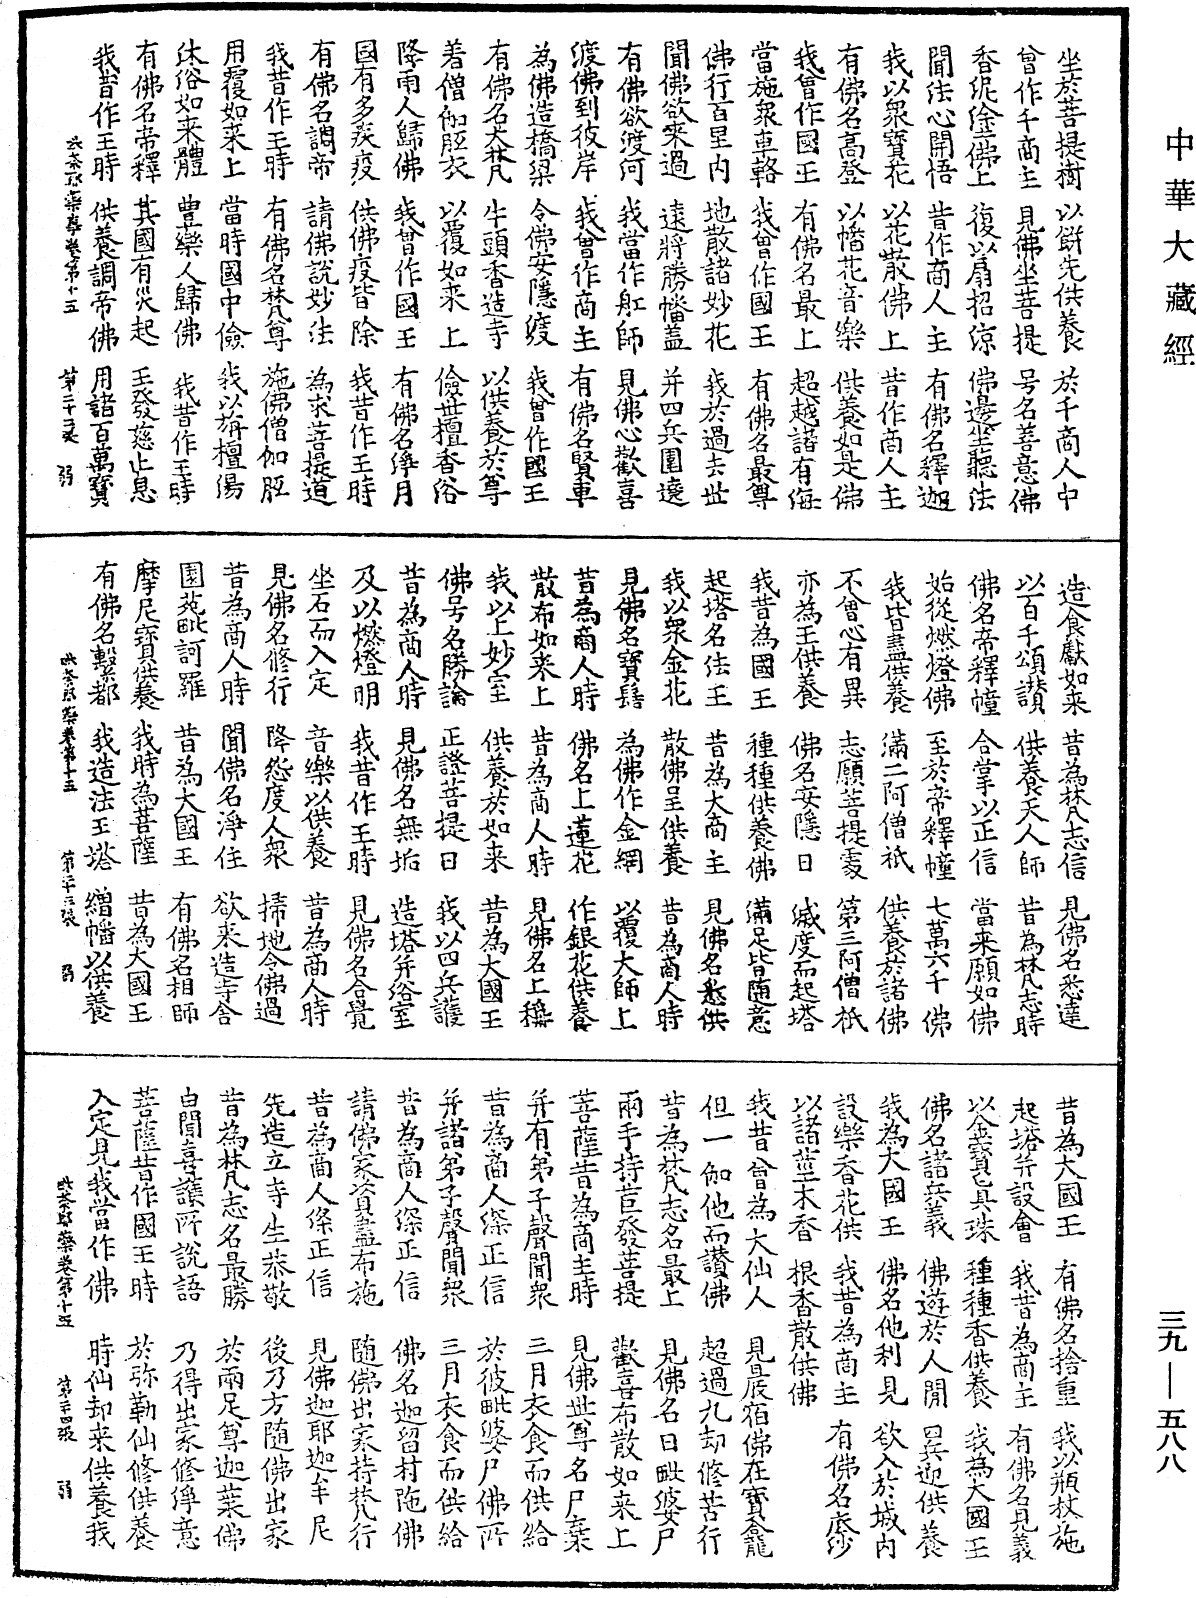 中華大藏經
坐於菩提樹 以餅先供養 於千商人中
曾作千商主 見佛坐菩提 号名善意佛
香泥塗佛上 復以扇招涼 佛邊坐聽法
聞法心開悟 昔作商人主 有佛名釋迦
我以衆寶花 以花散佛上 昔作商人主
有佛名高登 以幡花音樂 供養如是佛
我曾作國王 有佛名最上 超越諸有海
當施衆車輅 我曾作國王 有佛名最尊
佛行百里内 地散諸妙花 我於過去世
聞佛欲來過 遠將勝幡盖 并四兵圍遶
有佛欲渡河 我當作舡師 見佛心歡喜
渡佛到彼岸 我曾作商主 有佛名賢車
為佛造橋梁 令佛安隱渡 我曾作國王
有佛名大梵 牛頭香造寺 以供養於尊
着僧伽胝衣 以覆如来上 儉世檀香浴
降雨人歸佛 我曾作國王 有佛名淨月
國有多疾疫 供佛疫皆除 我昔作王時
有佛名調帝 請佛說妙法 為求菩提道
我昔作王時 有佛名梵尊 施佛僧伽胝
用覆如来上 當時國中儉 我以栴檀湯
沐浴如来體 豊樂人歸佛 我昔作王時
有佛名帝釋 其國有災起 王發慈止息
我昔作王時 供養調帝佛 用諸百萬寶
藥事卷第十五 第二十二張 弱
造食獻如来 昔為梵志信 見佛名悉達
以百千頌讃 供養天人師 昔為梵志時
佛名帝釋幢 合掌以正信 當来願如佛
始從燃燈佛 至於帝釋幢 七萬六千佛
我皆盡供養 滿二阿僧祇 供養於諸佛
不曾心有異 志願菩提處 第三阿僧祇
亦為王供養 佛名安隱日 滅度而起塔
我昔為國王 種種供養佛 滿足皆随意
起塔名法王 昔為大商主 見佛名悉供
我以衆金花 散佛呈供養 昔為商人時
見佛名寶髻 為佛作金網 以覆大師上
昔為商人時 佛名上蓮花 作銀花供養
散布如来上 昔為商人時 見佛名上稱
我以上妙室 供養於如来 昔為大國王
佛号名勝論 正證菩提日 我以四兵護
昔為商人時 見佛名無垢 造塔并浴室
及以燃燈明 我昔作王時 見佛名合覺
坐石而入定 音樂以供養 昔為商人時
見佛名修行 降怨度人衆 掃地令佛過
昔為商人時 聞佛名淨住 欲来造寺舍
園苑毗訶羅 昔為大國王 有佛名相師
摩尼寶供養 我時為菩薩 昔為大國王
有佛名繫都 我造法王塔 繒幡以供養
藥事卷第十五 第二十三張 弱
昔為大國王 有佛名捨重 我以瓶杖施
起塔并設會 我昔為商主 有佛名見義
以金寶真珠 種種香供養 我為大國王
佛名諸兵義 佛遊於人閒 畀迎供養
我為大國王 佛名他利見 欲入於城内
設樂香花供 我昔為商主 有佛名底沙
以諸莖木香 根香散供佛
我昔曾為大仙人 見底宿佛在寶龕
但一伽他而讃佛 超過九劫修苦行
昔為梵志名最上 見佛名曰毗婆尸
兩手持荳發菩提 歡喜布散如来上
菩薩昔為商主時 見佛世尊名尸棄
并有弟子聲聞衆 三月衣食而供給
昔為商人深正信 於彼毗婆尸佛所
并諸弟子聲聞衆 三月衣食而供給
昔為商人深正信 佛名迦留村陁佛
請佛家資盡布施 随佛出家持梵行
昔為商人深正信 見佛迦耶迦牟尼
先造立寺生恭敬 後乃方随佛出家
昔為梵志名最勝 於兩足尊迦葉佛
由聞喜護所說語 乃得出家修淨意
菩薩昔作國王時 於弥勒仙修供養
入定見我當作佛 時仙却来供養我
藥卷第十五 第二十四張 弱
三九—五八八